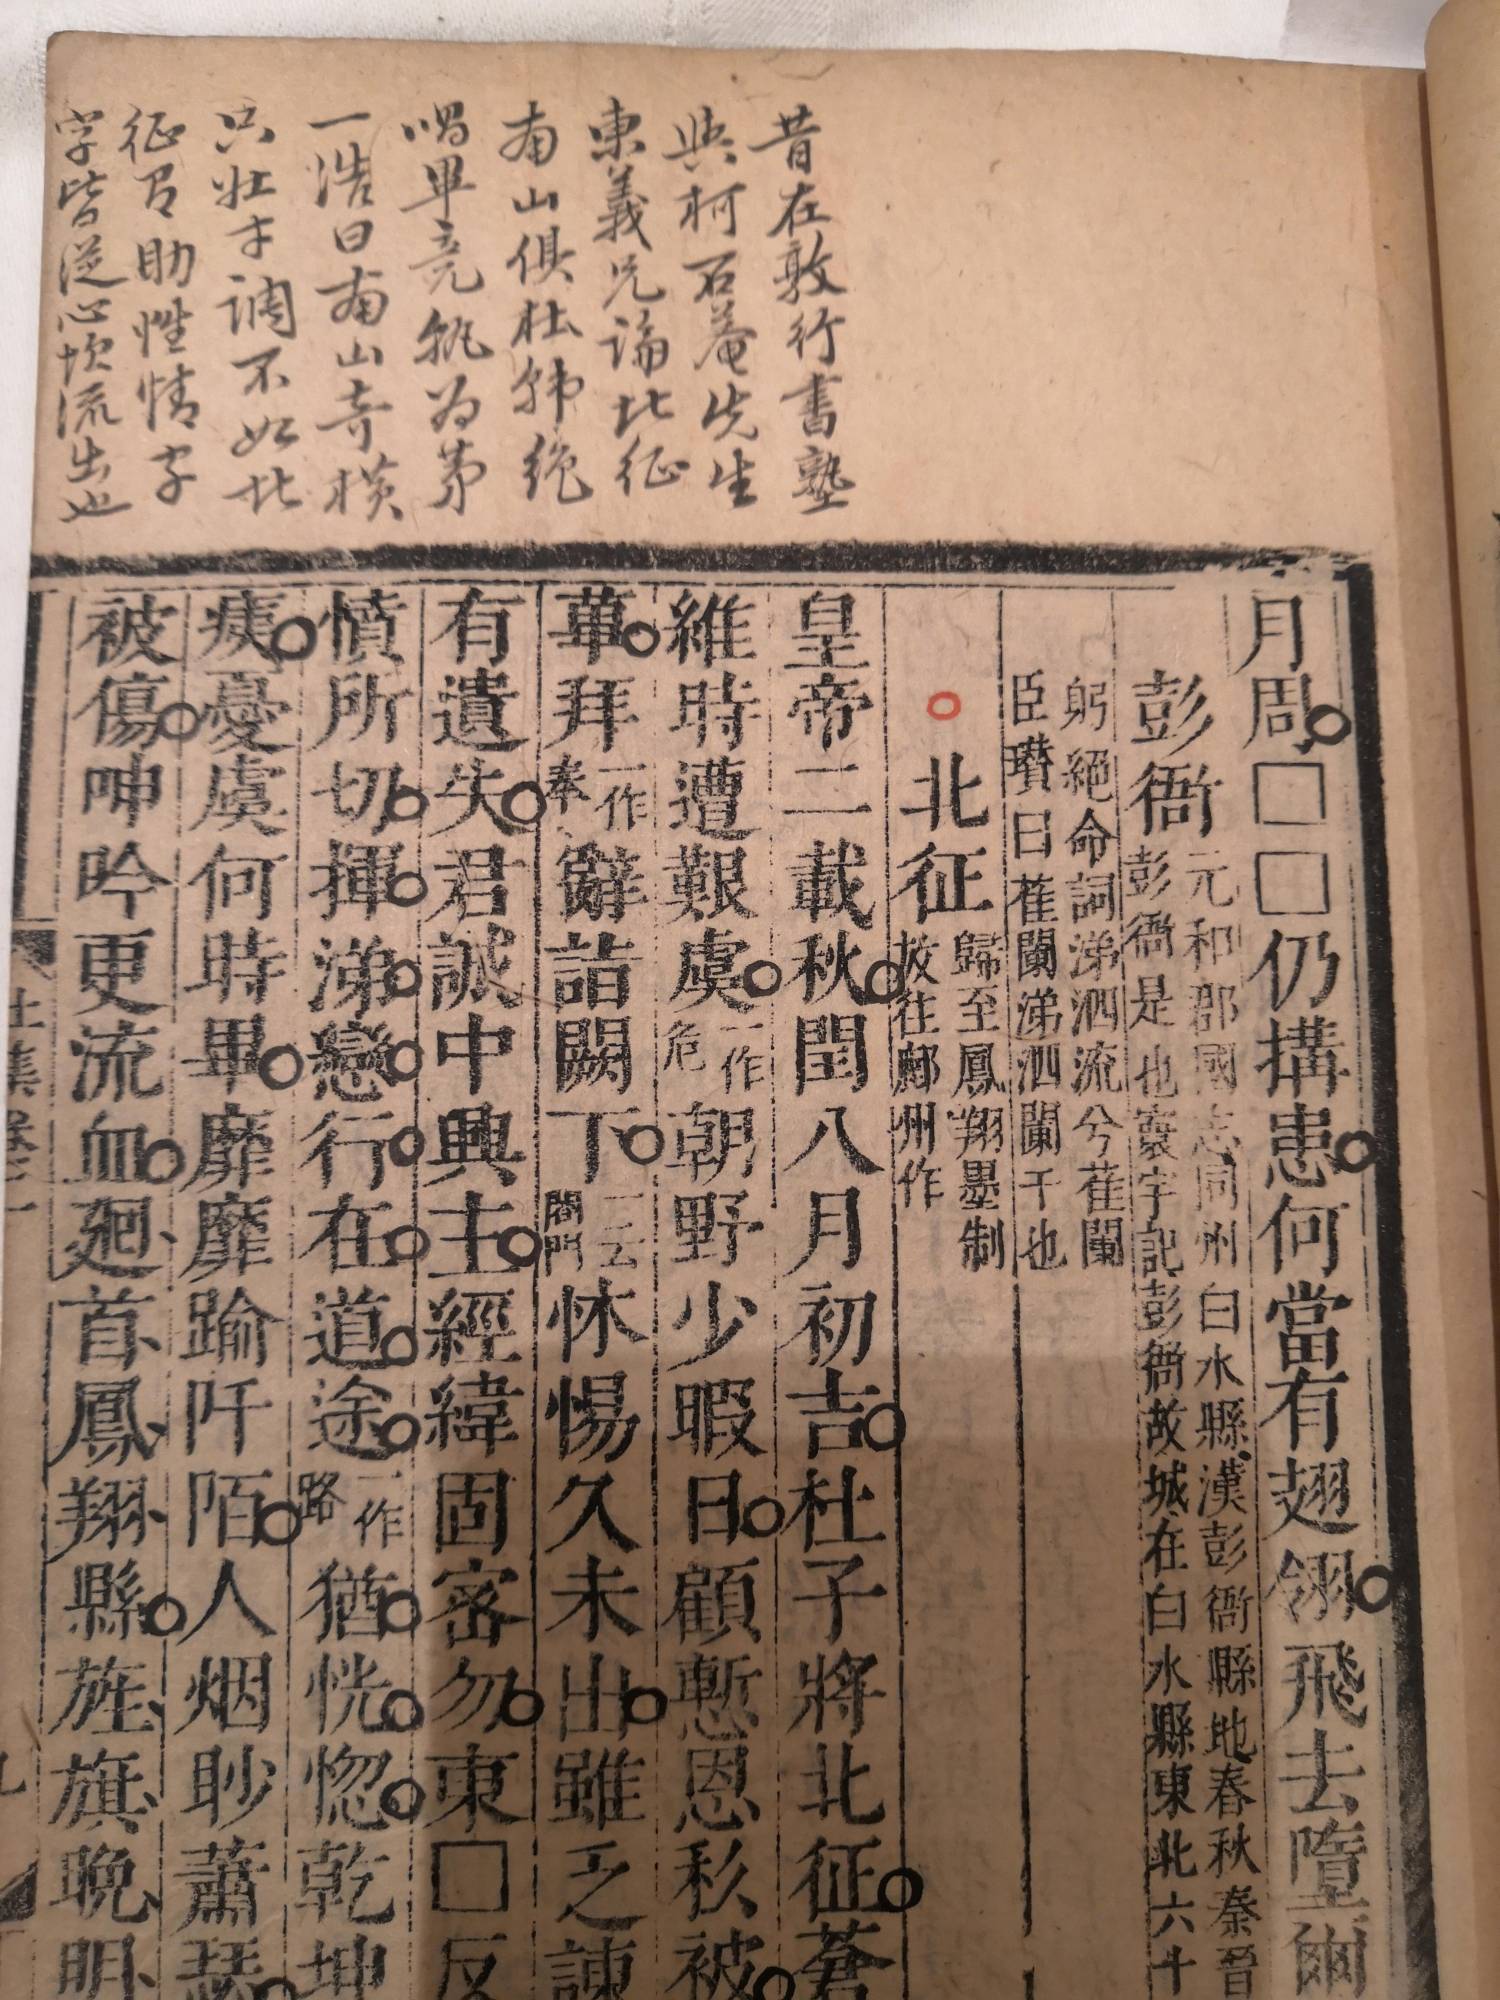 昔在敦行書塾
與柯石菴先生
東義兄論北征
南山俱杜韓絶
唱畢竟孰為第
一浩曰南山奇横
只壮于調不如北
征有助性情字
字皆從心坎流出也
月周□□仍搆患何當有翅翎飛去墮爾
彭衙
元和郡國志同州白水縣漢彭衙縣地春秋秦晉
彭衙是也寰宇記彭衙故城在白水縣東北六十
躬絕命詞涕泗流兮萑蘭
臣瓚曰萑闌涕泗闌干也
北征
歸至鳳翔墨制
放往鄜州作
皇帝二載秋閏八月初吉杜子將北征蒼
維時遭艱虞一作危朝野少暇日顧慙恩私被
蓽拜一作奉辭詣闕下一云閤門怵惕久未出雖乏諫
有遺失君誠中興主經緯固密勿東□反
憤所切揮涕戀行在道途一作路猶恍惚乾坤
痍憂虞何時畢靡靡踰阡陌人烟眇蕭瑟
被傷呻吟更流血廻首鳳翔縣旌旗晚明
杜集卷二
九